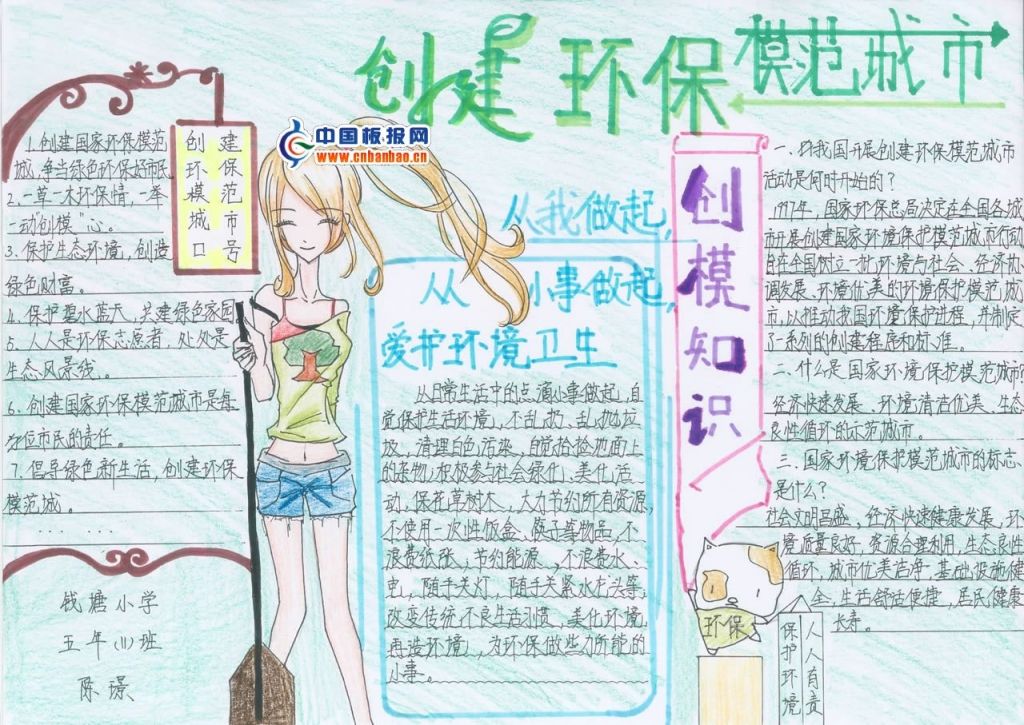 创建环保模范城市
中国板报网
www.cnbanbao.cn
创建
环保
模范
城市
口号
1.创建国家环保模范
城,争当绿色环保好市民
2.一草一木环保情,一举
一动"创模"心。
3.保护生态环境,创造
绿色财富。
4.保护碧水蓝天,共建绿色家园
5.人人是环保志愿者,处处是
生态风景线。
6.创建国家环保模范城市是每
位市民的责任。
7.倡导绿色新生活,创建环保
模范城。
......
钱塘小学
五年(11)班
陈璟
从我做起,
从小事做起,
爱护环境卫生
从日常生活中的点滴小事做起,自
觉保护生活环境,不乱扔、乱抛垃
圾,清理白色污染,自觉拾捡地面上
的杂物,积极参与社会绿化、美化活
动,保花草树木,大力节约所有资源,
不使用一次性饭盒、筷子等物品,不
浪费纸张,节约能源,不浪费水、
电,随手关灯,随手关紧水龙头等;
改变传统不良生活习惯,美化环境,
再造环境,为环保做些力所能的
小事。
创模知识
一、我国开展创建环保模范城市
活动是何时开始的?
1997年,国家环保总局决定在全国各城
市开展创建国家环境保护模范城市行动
旨在全国树立一批环境与社会、经济协
调发展、环境优美的环境保护模范城
市,以推动我国环境保护进程,并制定
了一系列的创建程序和标准。
二、什么是国家环境保护模范城市
经济快速发展、环境清洁优美、生态
良性循环的示范城市。
三、国家环境保护模范城市的标志
是什么?
社会文明昌盛,经济快速健康发展,环
境质量良好,资源合理利用,生态良性
循环,城市优美洁净,基础设施健
全,生活舒适便捷,居民健康
长寿。
环保
保护环境
人人有责